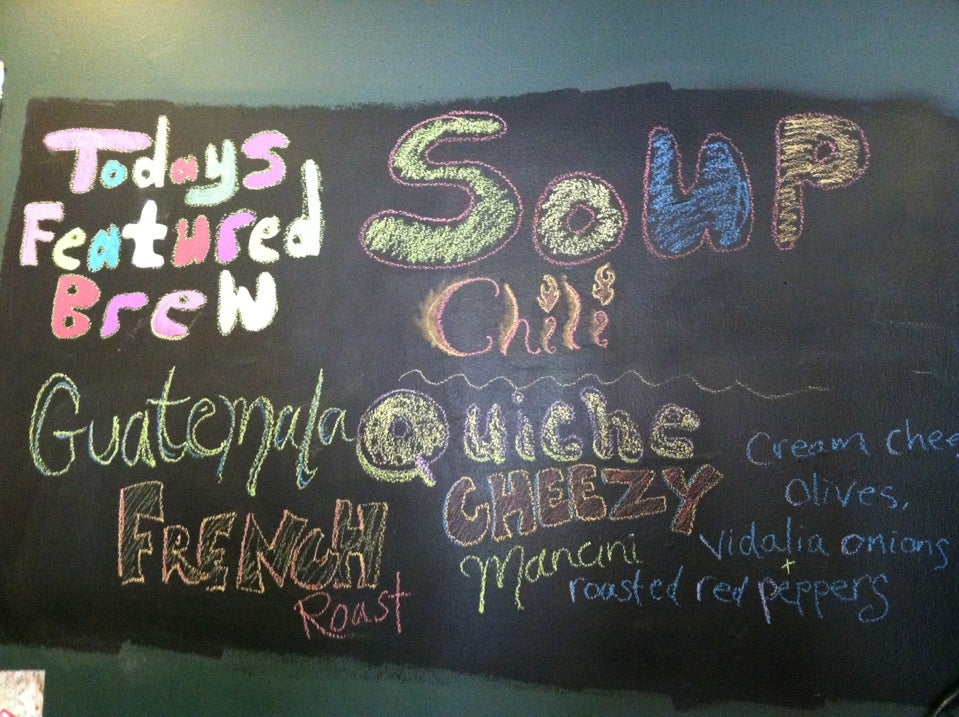 Todays
Featured
Brew
Guatemala
FRENCH
Roast
Soup
Chili
Quiche
CHEEZY
Mancini
Cream chee
Olives,
Vidalia onions
+
roasted red peppers